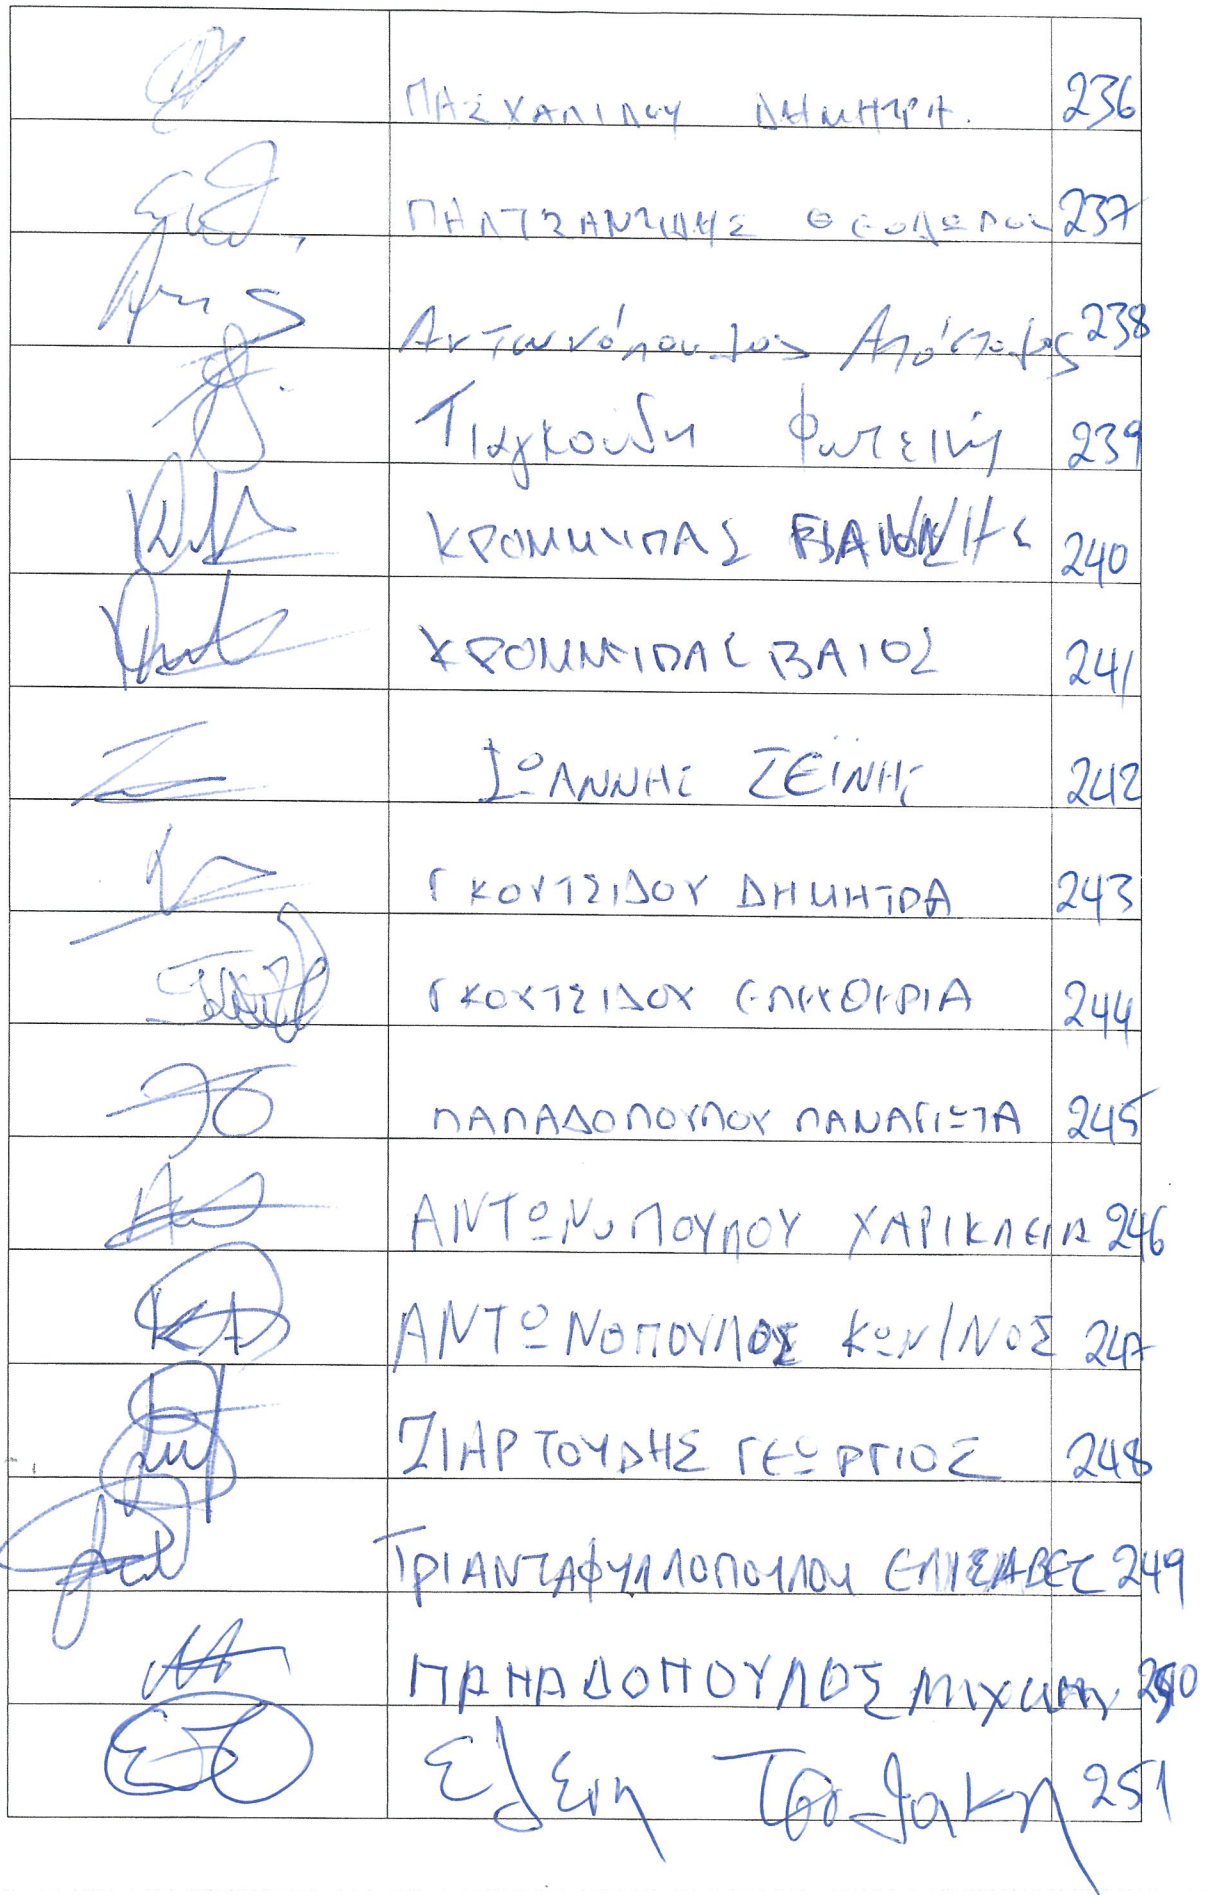 ΠΑΣΧΑΛΙΔΟΥ ΔΗΜΗΤΡΑ. 236
ΠΑΛΤΣΑΝΤΙΔΗΣ ΘΕΟΔΩΡΟΣ 237
Αντωνόπουλος Απόστολος 238
Τιαγκούδη Φωτεινή 239
ΚΡΟΜΜΥΔΑΣ 240
ΚΡΟΜΜΥΔΑΣ ΒΑΙΟΣ 241
ΙΩΑΝΝΗΣ ΖΕΪΝΗΣ 242
ΓΚΟΥΤΣΙΔΟΥ ΔΗΜΗΤΡΑ 243
ΓΚΟΥΤΣΙΔΟΥ ΕΛΕΥΘΕΡΙΑ 244
ΠΑΠΑΔΟΠΟΥΛΟΥ ΠΑΝΑΓΙΩΤΑ 245
ΑΝΤΩΝΟΠΟΥΛΟΥ ΧΑΡΙΚΛΕΙΑ 246
ΑΝΤΩΝΟΠΟΥΛΟΣ ΚΩΝ/ΝΟΣ 247
ΖΙΑΡΤΟΥΔΗΣ ΓΕΩΡΓΙΟΣ 248
ΤΡΙΑΝΤΑΦΥΛΛΟΠΟΥΛΟΥ ΕΛΙΣΑΒΕΤ 249
ΠΑΠΑΔΟΠΟΥΛΟΣ 250
Ελένη 251